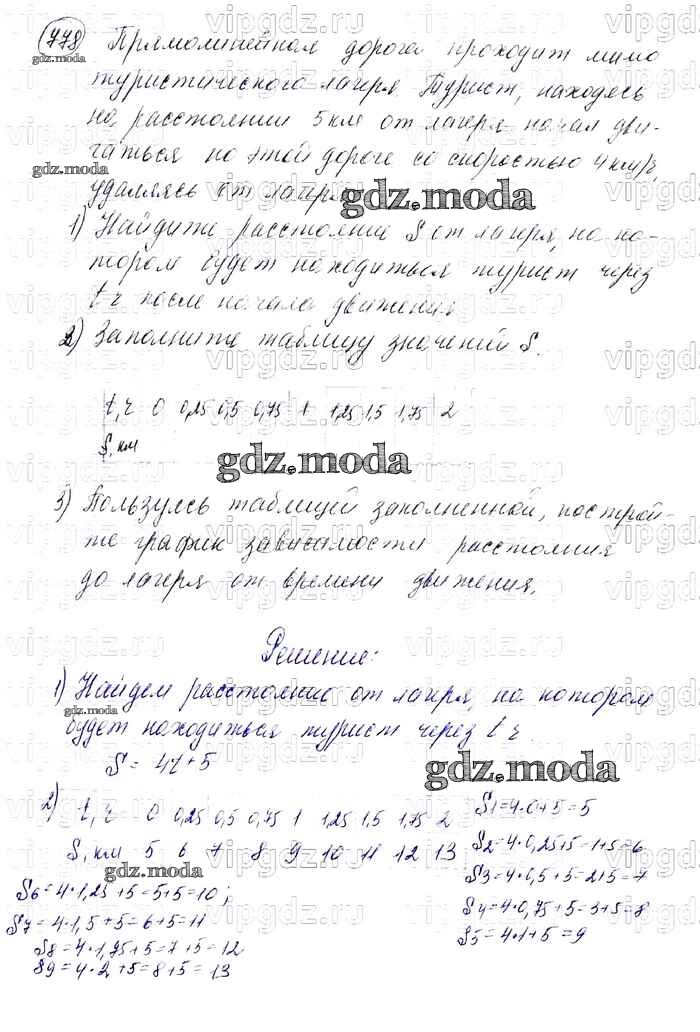 778 Прямолинейная дорога проходит мимо
туристического лагеря. Турист, находясь
на расстоянии 5 км от лагеря, начал дви-
гаться по этой дороге со скоростью 4 км/ч,
удаляясь от лагеря.
1) Найдите расстояние S от лагеря, на ко-
тором будет находиться турист через
t ч после начала движения
2) Заполните таблицу значений S.
t, ч 0 0,25 0,5 0,75 1 1,25 1,5 1,75 2
S, км
3) Пользуясь таблицей заполненной, построй-
те график зависимости расстояния
до лагеря от времени движения.
Решение:
1) Найдем расстояние от лагеря, на котором
будет находиться турист через t ч
S = 4t+5
2) t, ч 0 0,25 0,5 0,75 1 1,25 1,5 1,75 2
S, км 5 6 7 8 9 10 11 12 13
S1=4·0+5=5
S2=4·0,25+5=1+5=6
S3=4·0,5+5=2+5=7
S4=4·0,75+5=3+5=8
S5=4·1+5=9
S6=4·1,25+5=5+5=10;
S7=4·1,5+5=6+5=11
S8=4·1,75+5=7+5=12
S9=4·2+5=8+5=13
gdz.moda
vipgdz.ru